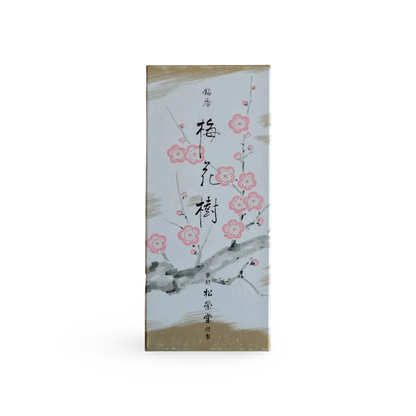 銘香
梅花樹
京都 松榮堂 特製